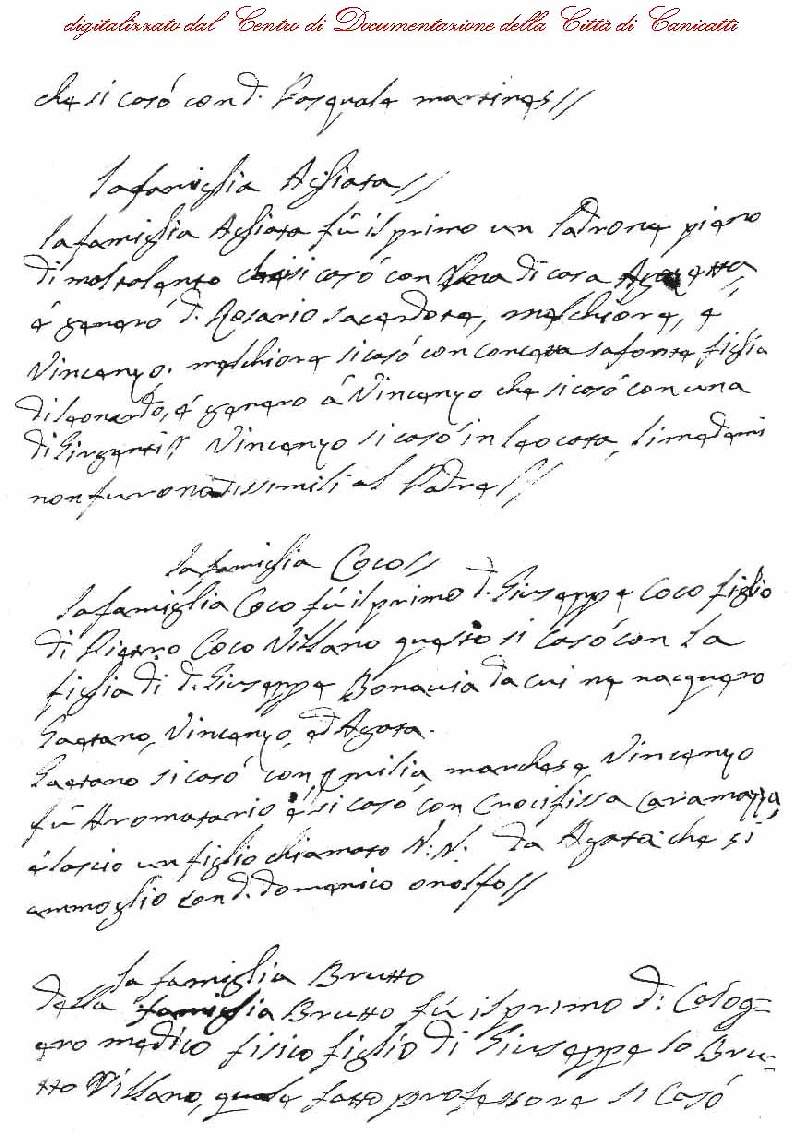 digitalizzato dal Centro di Documentazione della Città di Canicattì
che si casò con d. Pasquale martines//
la famiglia Agliata//
la famiglia Agliata fù il primo un ladrone pieno
di mal talento che si casò con di casa
é generò d. Rosario sacerdote, melchiore, é
Vincenzo. melchiore si casò con concetta safonte figlia
di leonardo, é generò á Vincenzo che si casò con una
di Girgenti// Vincenzo si casò in leocata, li medemi
non furono dissimili al Padre//
la famiglia Coco//
la famiglia Coco fù il primo d. Giuseppe Coco figlio
di Pietro Coco Villano questo si casò con la
figlia di d. Giuseppe Bonavia da cui ne nacquero
Gaetano, Vincenzo, ed Agata.
Gaetano si casò con Emilia marchese, Vincenzo
fù Aromatario é si casò con Crocifissa Caramazza,
é lascio un figlio chiamato N.N. da Agata che si
ammoglio con d. domenico onolfo//
la famiglia Brutto
della famiglia Brutto fù il primo d: Calog=
ero medico fisico figlio di Giuseppe lo Bru=
tto Villano, quale fatto professore si Casó